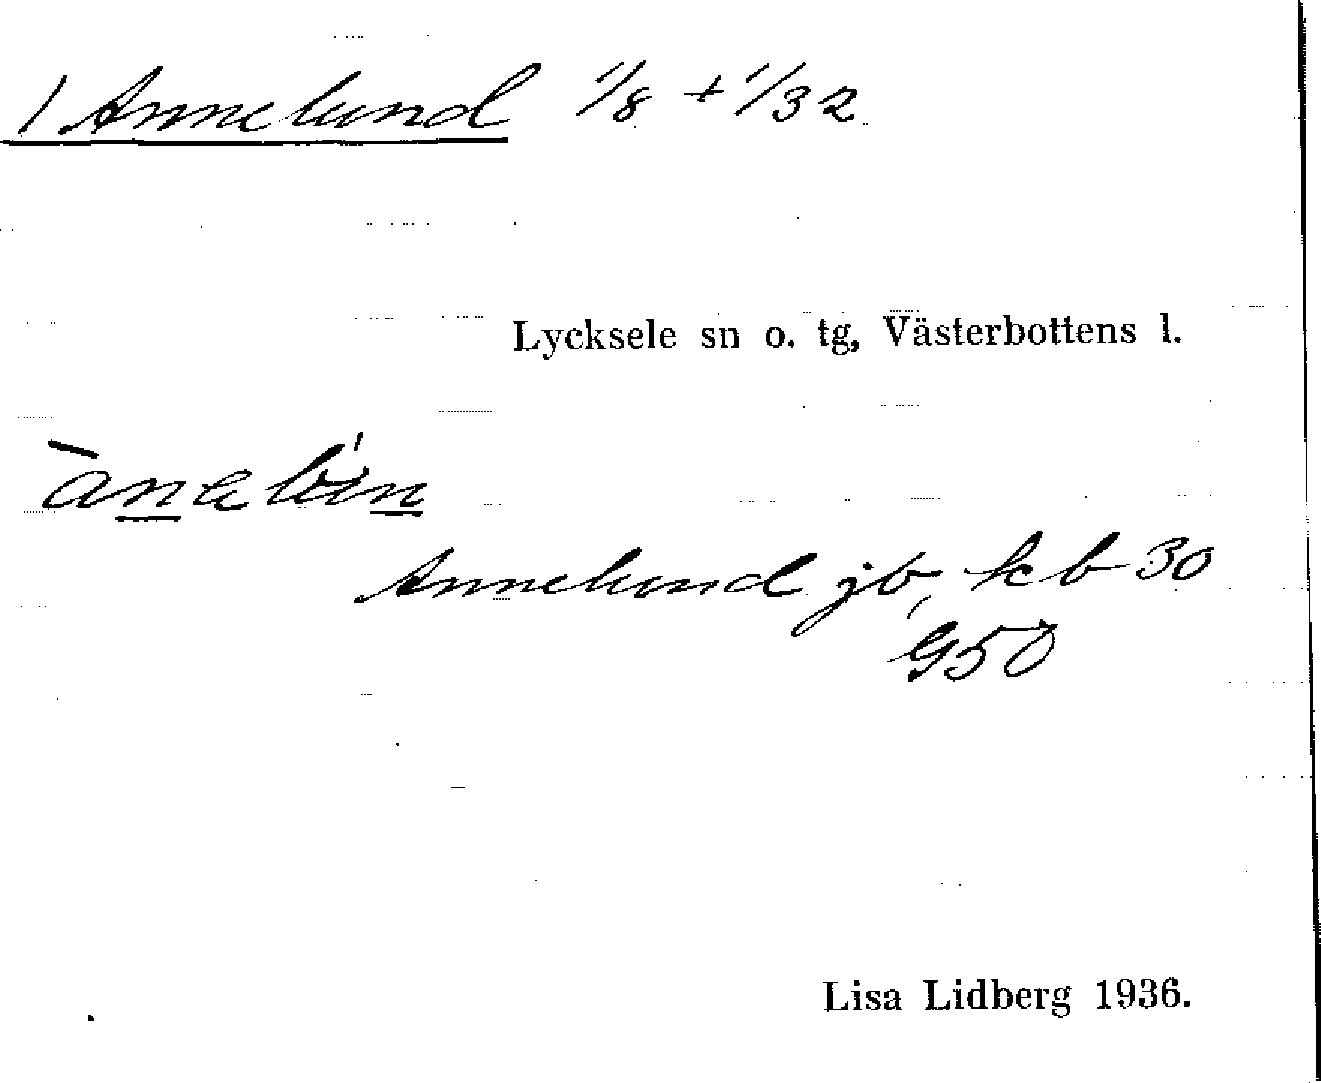 1 Annelund 1/8 + 1/32
Lycksele sn o. tg, Västerbottens l.
Annelund jb, kb 30
G50
Lisa Lidberg 1936.